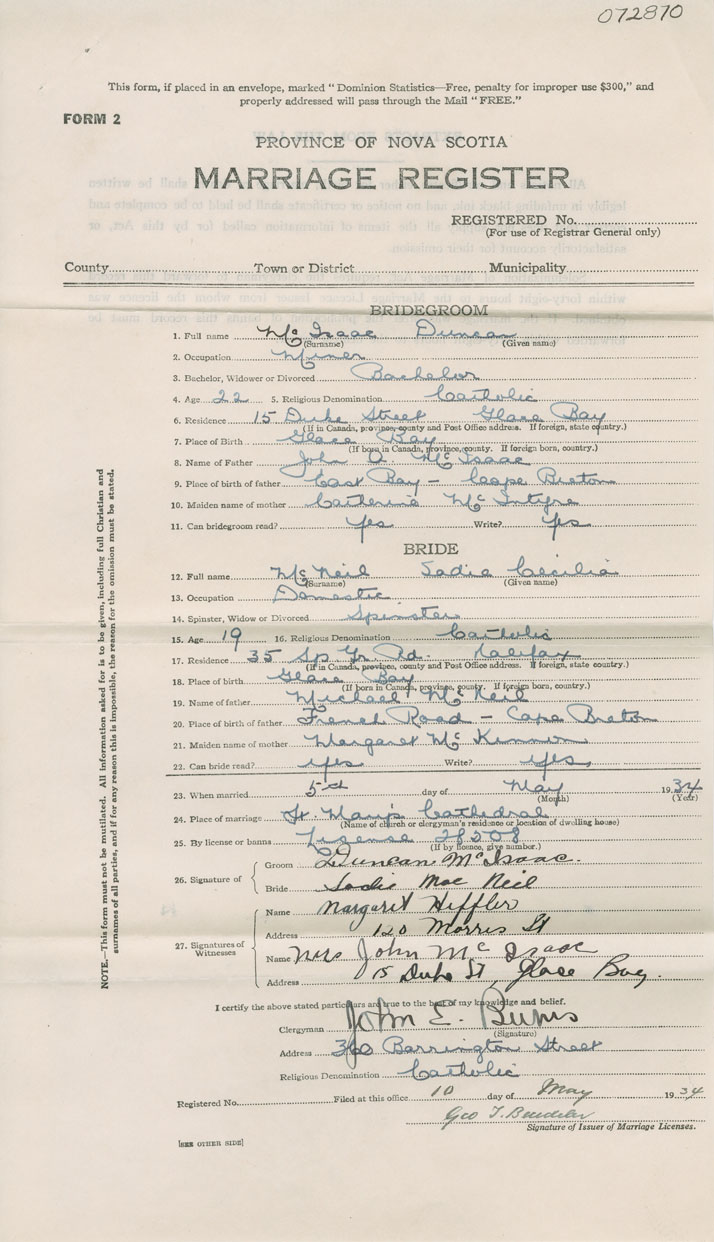 072870
This form, if placed in an envelope, marked "Dominion Statistics—Free, penalty for improper use $300," and
properly addressed will pass through the Mail "FREE."
FORM 2
PROVINCE OF NOVA SCOTIA
MARRIAGE REGISTER
REGISTERED No.
(For use of Registrar General only)
County Town or District Municipality
BRIDEGROOM
1. Full name Mc Isaac Duncan
(Surname) (Given name)
2. Occupation Miner
3. Bachelor, Widower or Divorced Bachelor
4. Age 22 5. Religious Denomination Catholic
6. Residence 15 Duke Street Glace Bay
(If in Canada, province, county and Post Office address. If foreign, state country.)
7. Place of Birth Glace Bay
(If born in Canada, province, county. If foreign born, country.)
8. Name of Father John A. McIsaac
9. Place of birth of father East Bay - Cape Breton
10. Maiden name of mother Catherine McIntyre
11. Can bridegroom read? Yes Write? Yes
BRIDE
12. Full name McNeil Sadie Cecilia
(Surname) (Given name)
13. Occupation Domestic
14. Spinster, Widow or Divorced Spinster
15. Age 19 16. Religious Denomination Catholic
17. Residence 35 Sp Gr Rd. Halifax
(If in Canada, province, county and Post Office address. If foreign, state country.)
18. Place of birth Glace Bay
(If born in Canada, province, county. If foreign born, country.)
19. Name of father Michael McNeil
20. Place of birth of father French Road - Cape Breton
21. Maiden name of mother Margaret McKinnon
22. Can bride read? Yes Write? Yes
23. When married 5th day of May 1934
(Month) (Year)
24. Place of marriage St. Mary's Cathedral
(Name of church or clergyman's residence or location of dwelling house)
25. By license or banns License 28508
(If by licence, give number.)
26. Signature of
Groom Duncan McIsaac.
Bride Sadie MacNeil
27. Signatures of
Witnesses
Name Margaret Heffler
Address 120 Morris St
Name Mrs John McIsaac
Address 15 Duke St, Glace Bay.
I certify the above stated particulars are true to the best of my knowledge and belief.
Clergyman John E. Burns
(Signature)
Address 360 Barrington Street
Religious Denomination Catholic
Registered No. Filed at this office 10 day of May 1934
Geo T.
Signature of Issuer of Marriage Licenses.
[SEE OTHER SIDE]
NOTE.—This form must not be mutilated. All information asked for is to be given, including full Christian and
surnames of all parties, and if for any reason this is impossible, the reason for the omission must be stated.